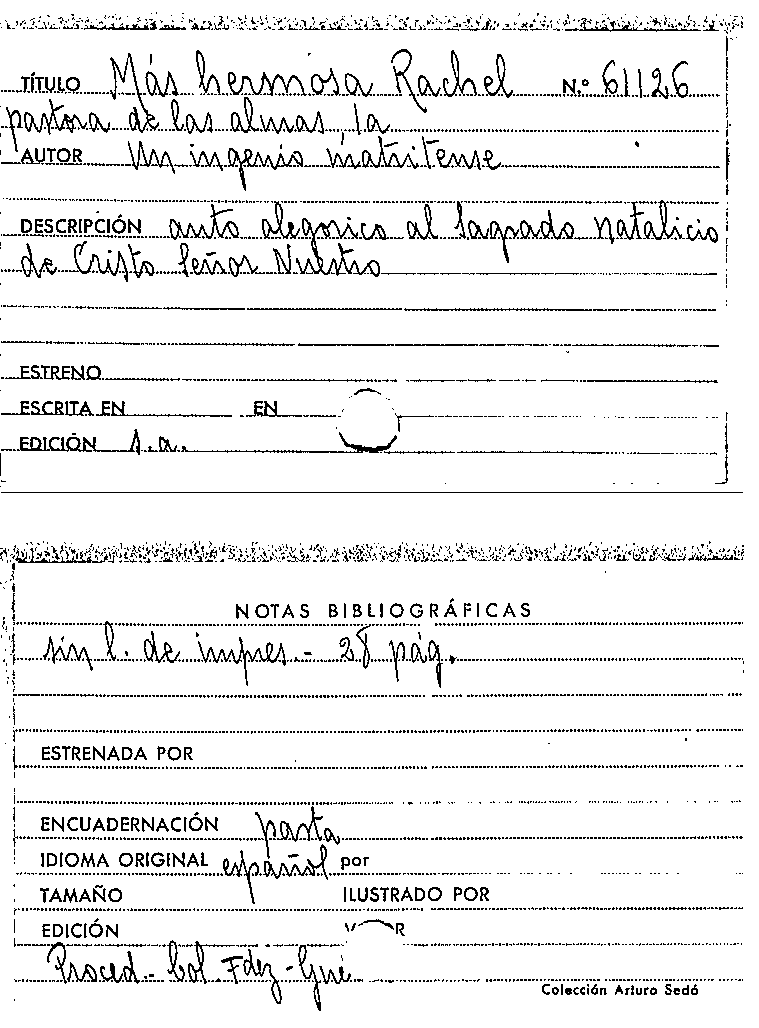 TÍTULO Más hermosa Rachel N.º 61126
pastora de las almas, la
AUTOR Un ingenio matritense
DESCRIPCIÓN auto alegorico al Sagrado Natalicio
de Cristo Señor Nuestro
ESTRENO
ESCRITA EN EN
EDICIÓN s.a.
NOTAS BIBLIOGRÁFICAS
sin l. de impres.- 28 pág.
ESTRENADA POR
ENCUADERNACIÓN pasta
IDIOMA ORIGINAL español por
TAMAÑO ILUSTRADO POR
EDICIÓN
Proced.- Col. Fdez-Gue
Colección Arturo Sedó